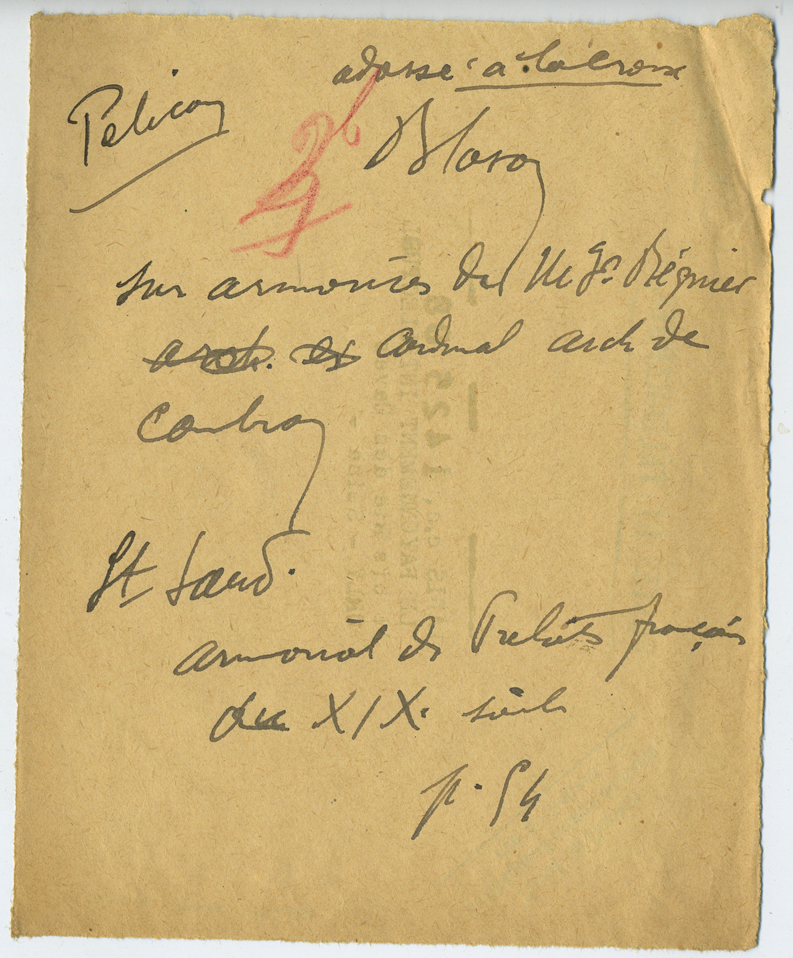 adossé à la croix
Pelican
Blason
sur armoiries de Mgr Régnier
arch. et Cardinal arch de
Cambrai
St Saud.
armorial des Prélats français
du XIX. siècle
p. 54